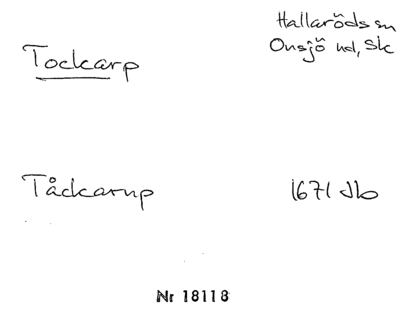 Hallaröds sn
Onsjö hd, Sk
Tockarp
Tåckarup 1671 Jb
Nr 18118